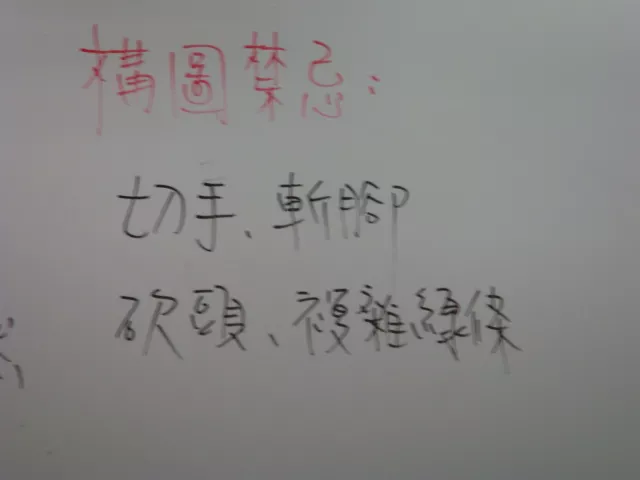 構圖禁忌：
切手、斬腳
砍頭、複雜線條